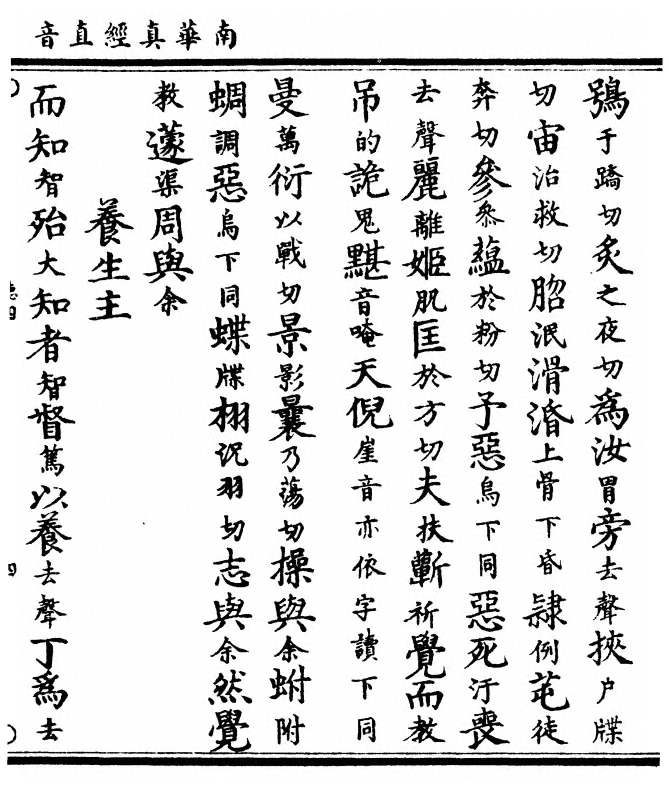 南華真經直音
鴞于蹻切炙之夜切爲汝胃旁去聲挾户牒
切宙治救切脗泯滑湣上骨下昏隷例芚徒
奔切參叅蘊於粉切予惡烏下同惡死汙喪
去聲麗離姬肌匡於方切夫扶蘄祈覺而教
吊的詭鬼黮音唵天倪崖音亦依字讀下同
曼萬衍以戰切景影曩乃蕩切操與余蚹附
蜩調惡烏下同蝶牒栩況羽切志與余然覺
教蘧渠周與余
養生主
而知智殆大知者智督篤以養去聲丁爲去
四